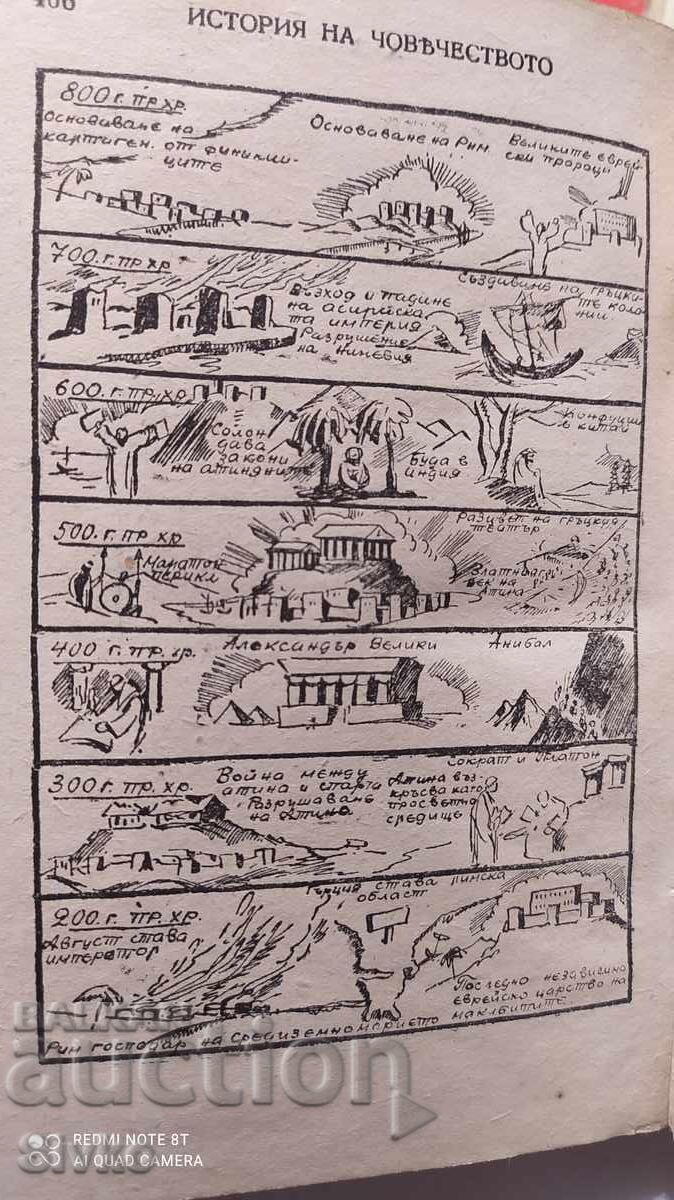 ИСТОРИЯ НА ЧОВѢЧЕСТВОТО
800 г. ПР. ХР.
Основаване на
картаген. от финикий-
ците
Основаване на Рим
Великите еврей-
ски пророци
700. г. ПР ХР
Възход и падане
на асирийска
та империя
Разрушение
на Ниневия
Създаване на гръцки-
те коло
нии
600 г. ПР. ХР.
Солон
дава
закони
на атиняните
Буда в
Индия
Конфуций
в Китай
500. г. ПР ХР
Маратон
Перикл
Разцвет на гръцкия
театър
Златния
век на
Атина
400 г. ПР. ХР.
Александър Велики
Анибал
300 г. ПР. ХР.
Война между
атина и спарта
Разрушаване
на Атина
Атина въз-
кръсва като
просветно
средище
Сократ и Платон
200. г. ПР. ХР.
Август става
император
Гърция става римска
област
Последно независимо
еврейско царство на
макабитите
Рим господар на средиземноморието
BALKAN
auction
REDMI NOTE 8T
AI QUAD CAMERA